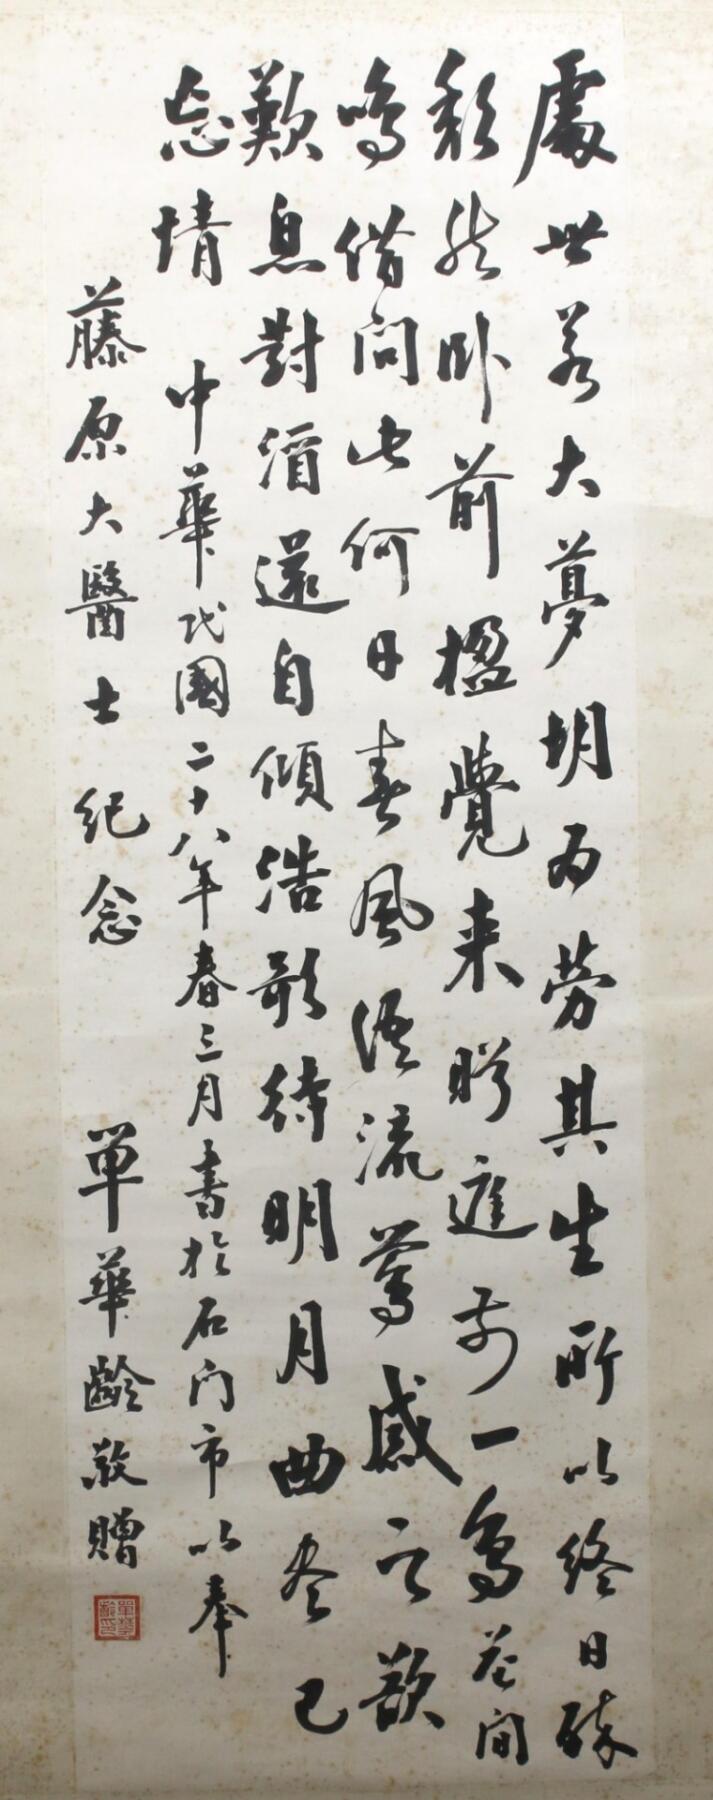 處世若大夢胡为勞其生所以終日醉
頹然卧前楹覺来眄庭前一鳥花间
鳴借问此何日春風语流莺感之欲
歎息對酒還自傾浩歌待明月曲尽已
忘情 中華民國二十八年春三月書於石门市以奉
藤原大醫士紀念 单華齡敬贈
單華齡印